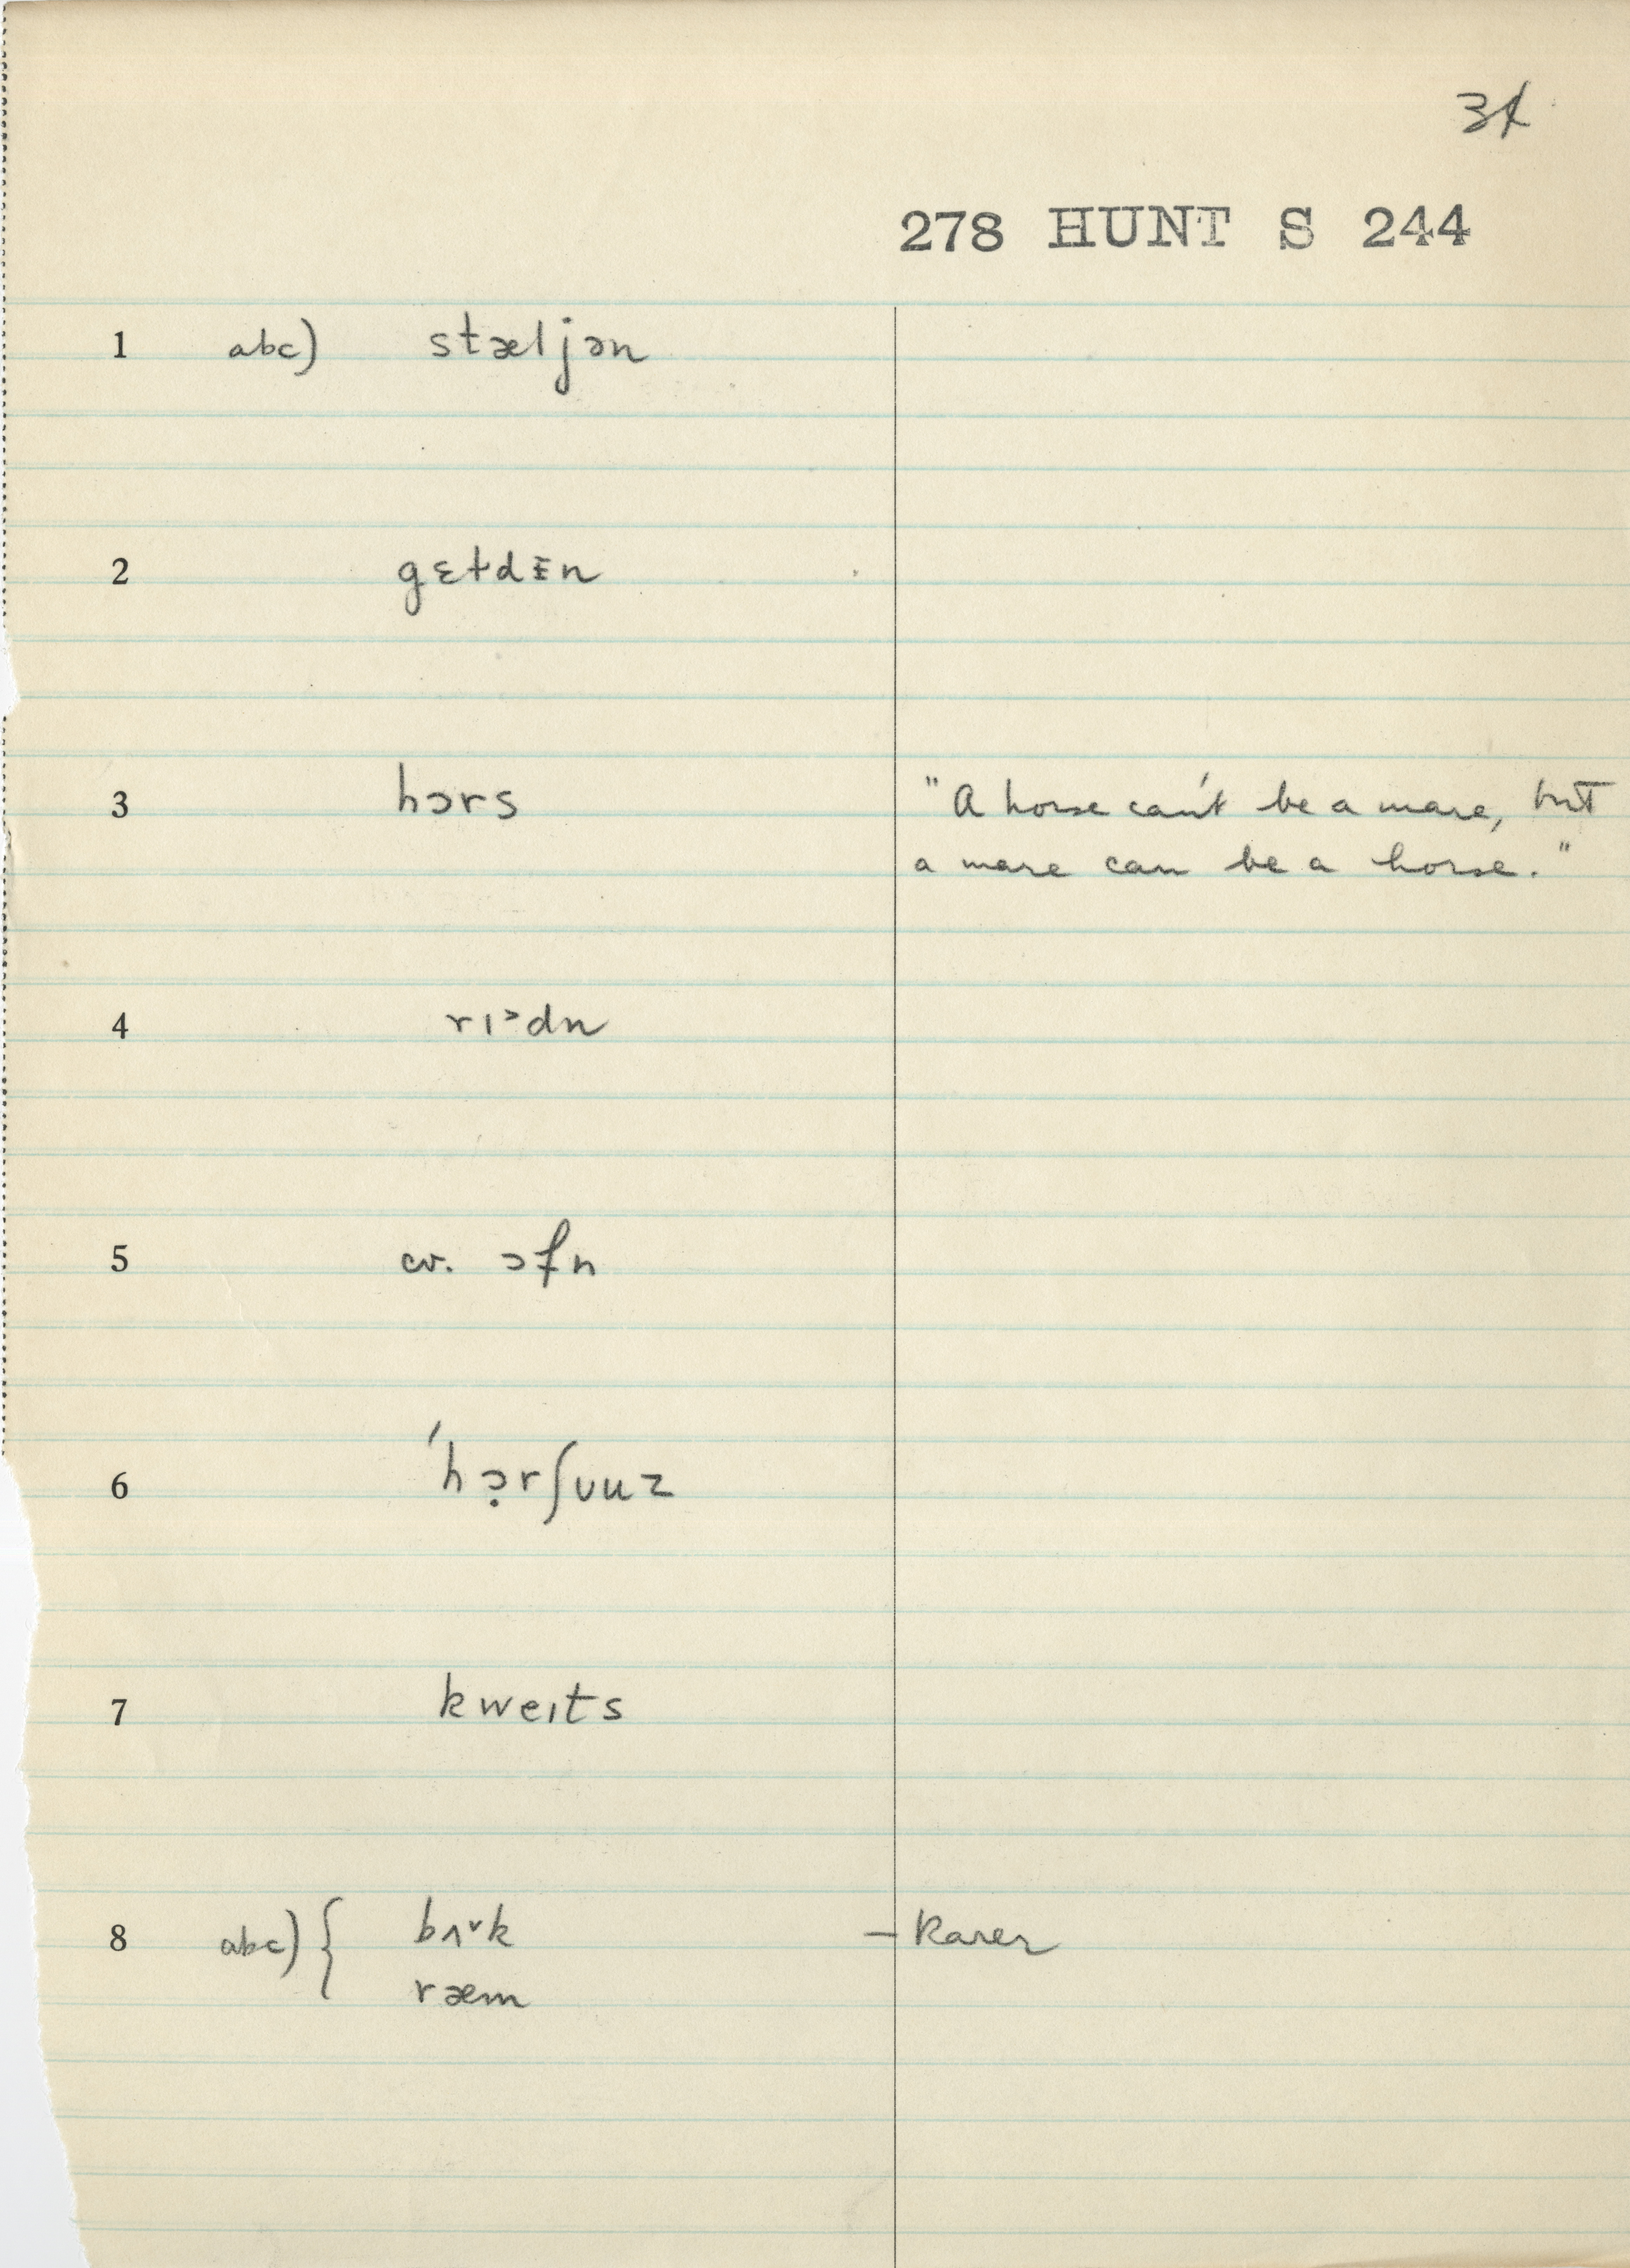 34
278 HUNT S 244
1 abc) stæljən
2 gɛɫdɪ̵n
3 hɔrs "A horse can't be a mare, but
a mare can be a horse."
4 rɪ˃dn
5 cv. ɔfn
6 ′hɔ̣rʃuuz
7 kweɪts
8 abc) { bʌ˅k — Rarer
ræm